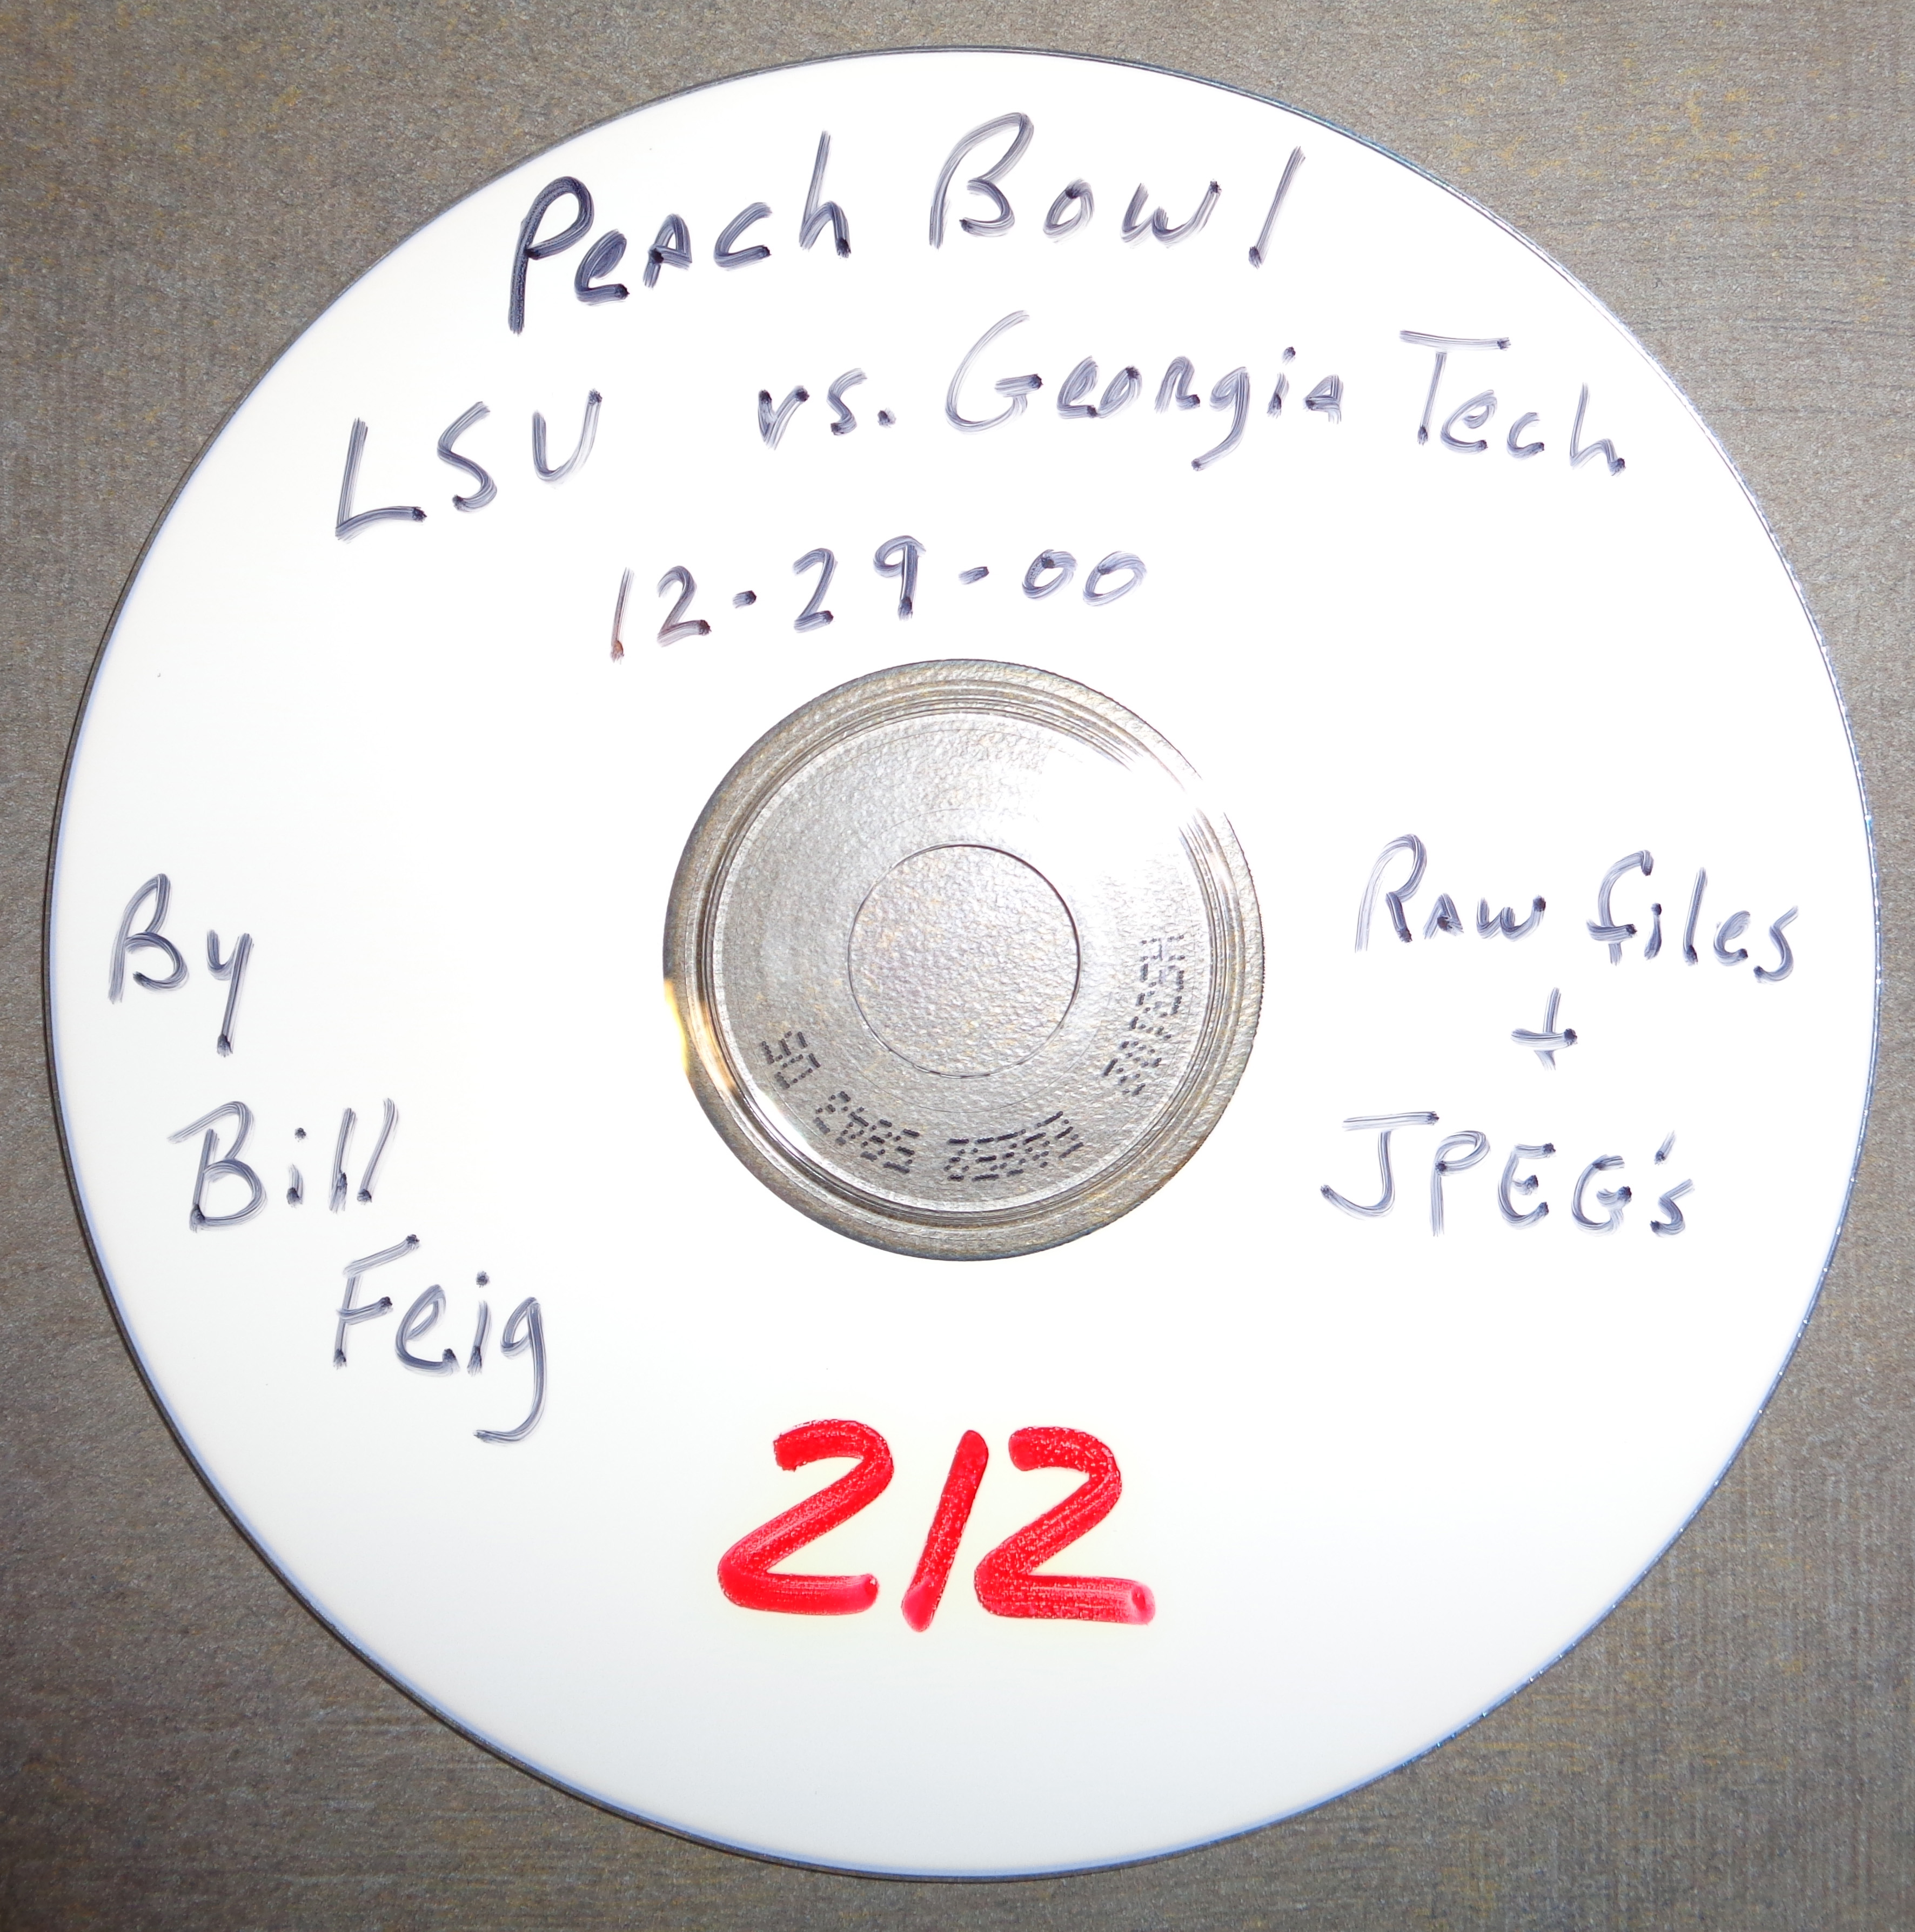 Peach Bowl
LSU vs. Georgia Tech
12-29-00
By
Bill
Feig
Raw files
+
JPEG's
2/2